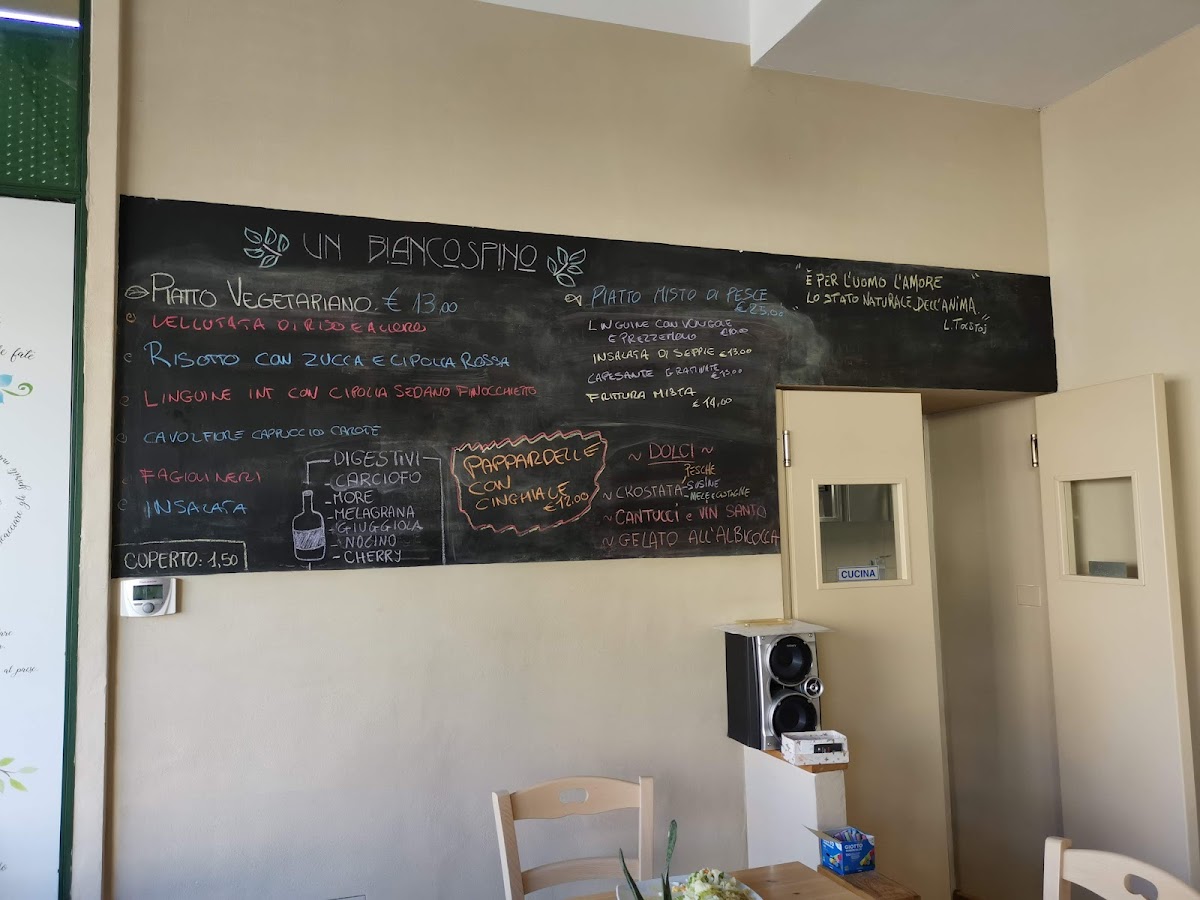 UN BIANCOSPINO
PIATTO VEGETARIANO. € 13,00
VELLUTATA DI RISO E
RISOTTO CON ZUCCA E CIPOLLA ROSSA
LINGUINE INT CON CIPOLLA SEDANO FINOCCHIETTO
CAVOLFIORE CAPPUCCIO CAROTE
FAGIOLI NERI
INSALATA
COPERTO: 1,50
DIGESTIVI
- CARCIOFO
- MORE
- MELAGRANA
- GIUGGIOLA
- NOCINO
- CHERRY
PAPPARDELLE
CON
CINGHIALE
€ 12.00
PIATTO MISTO DI PESCE
€ 25,00
LINGUINE CON VONGOLE
E PREZZEMOLO €10,00
INSALATA DI SEPPIE €13.00
CAPESANTE GRATINATE
€ 15.00
FRITTURA MISTA
€ 14,00
~ DOLCI ~
~ CROSTATA
PESCHE
- SUSINE
MELE E CASTAGNE
~ CANTUCCI E VIN SANTO
~ GELATO ALL'ALBICOCCA
"È PER L'UOMO L'AMORE
LO STATO NATURALE DELL'ANIMA."
L. Tolstoj
CUCINA
GIOTTO
al paese